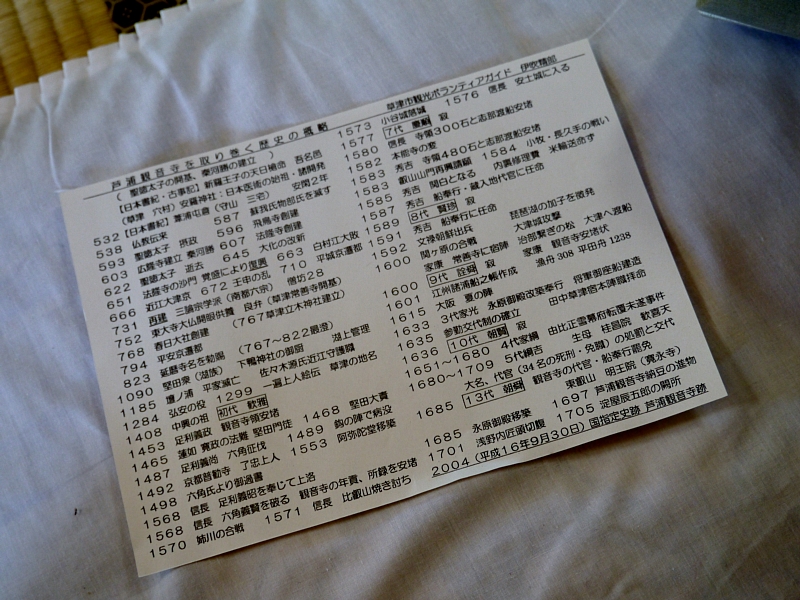 芦浦観音寺を取り巻く歴史の概略
草津市観光ボランティアガイド 伊吹精郎
(聖徳太子の開基、秦河勝の建立)
【日本書紀・古事記】新羅王子の天日槍命 吾名邑
(草津 穴村)安羅神社:日本医術の始祖・諸開発
532【日本書紀】葦浦屯倉(守山 三宅) 安閑2年
538 仏教伝来 587 蘇我氏物部氏を滅す
593 聖徳太子 摂政 596 飛鳥寺創建
603 広隆寺建立 秦河勝 607 法隆寺創建
622 聖徳太子 逝去 645 大化の改新
651 法隆寺の沙門 覚盛により 663 白村江大敗
666 近江大津京 672 壬申の乱 710 平城京遷都
731 再建 三論宗学派(南都六宗) 僧坊28
752 東大寺大仏開眼供養 良弁(草津常善寺開基)
768 春日大社創建 (767草津立木神社建立)
794 平安京遷都
823 延暦寺名を勅諡 (767~822最澄)
1090 堅田衆(湖族) 下鴨神社の御厨 湖上管理
1185 壇ノ浦 平家滅亡 佐々木源氏近江守護職
1284 弘安の役 1299 一遍上人絵伝 草津の地名
1408 中興の祖 初代 歓雅
1453 足利義政 観音寺領安堵
1465 蓮如 寛政の法難 堅田門徒 1468 堅田大責
1487 足利義尚 六角征伐 1489 鈎の陣で病没
1492 京都普勧寺 了忠上人 1553 阿弥陀堂移築
1498 六角氏より御過書
1568 信長 足利義昭を奉じて上洛
1568 信長 六角義賢を破る 観音寺の年貢、所録を安堵
1570 姉川の合戦 1571 信長 比叡山焼き討ち
1573 小谷城落城 1576 信長 安土城に入る
1577 7代 寂
1580 信長 寺領300石と志那渡船安堵
1582 本能寺の変
1583 秀吉 寺領480石と志那渡船安堵
1584 小牧・長久手の戦い
叡山山門再興請願 内裏修理費 米輸送命ず
1585 秀吉 関白となる
1587 秀吉 船奉行・蔵入地代官に任命
1589 8代 賢珍 寂
1591 秀吉 船奉行に任命 琵琶湖の加子を徴発
1592 文禄朝鮮出兵 大津城攻撃
1600 関ヶ原の合戦 治部繋ぎの松 大津へ渡船
家康 常善寺に宿陣 家康 観音寺安堵状
1600 9代 詮舜 寂
1601 江州諸浦船之帳作成 漁舟308 平田舟1238
1615 大阪 夏の陣
1633 3代家光 永原御殿改築奉行 将軍御座船建造
1635 参勤交代制の確立 田中草津宿本陣職拝命
1636 10代 朝賢 寂
1651~1680 4代家綱 由比正雪幕府転覆未遂事件
1680~1709 5代綱吉 生母 桂昌院 歓喜天
大名、代官(34名の死刑・免職)の処罰と交代
1685 13代 朝舜 観音寺の代官・船奉行罷免
東叡山 明王院(寛永寺)
1685 永原御殿移築 1697 芦浦観音寺納豆の進物
1701 浅野内匠頭切腹 1705 淀屋辰五郎の闕所
2004(平成16年9月30日)国指定史跡 芦浦観音寺跡